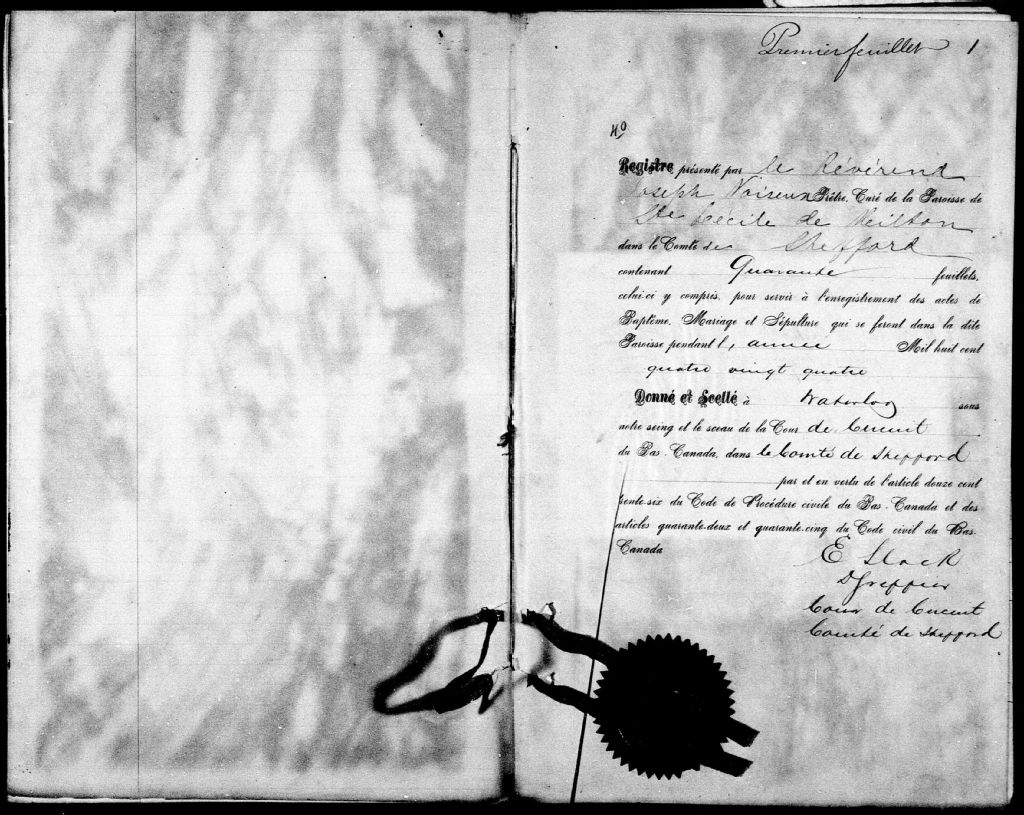 Premier feuillet 1
No
Registre présenté par le Révérend
Joseph Noiseux Prêtre, Curé de la Paroisse de
Ste Cécile de Meilton
dans le Comté de Shefford
contenant Quarante feuillets,
celui-ci y compris, pour servir à l'enregistrement des actes de
Baptême, Mariage et Sépulture qui se feront dans la dite
Paroisse pendant l'année Mil huit cent
quatre vingt quatre
Donné et Scellé à Waterloo sous
notre seing et le sceau de la Cour de Circuit
du Bas-Canada, dans le Comté de Shefford
par et en vertu de l'article douze cent
trente-six du Code de Procédure civile du Bas-Canada et des
articles quarante-deux et quarante-cinq du Code civil du Bas-
Canada
E Slack
D/Greffier
Cour de Circuit
Comté de Shefford